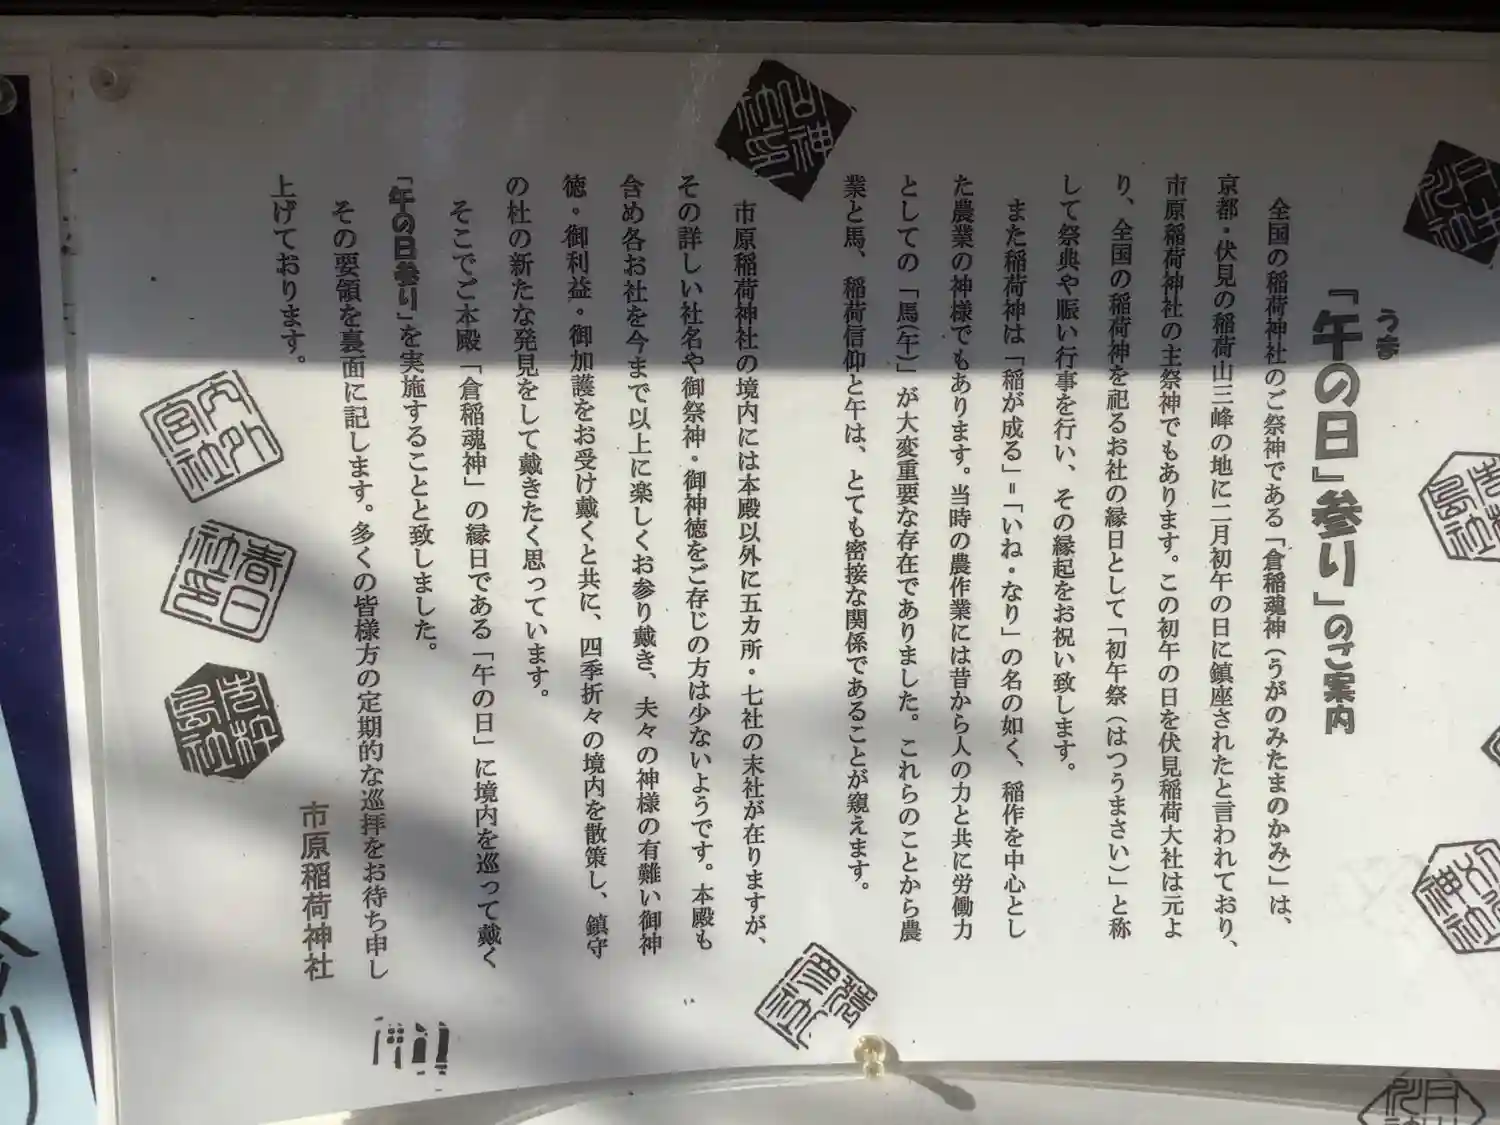 うま
「午の日」参り」のご案内
全国の稲荷神社のご祭神である「倉稲魂神（うがのみたまのかみ）」は、
京都・伏見の稲荷山三峰の地に二月初午の日に鎮座されたと言われており、
市原稲荷神社の主祭神でもあります。この初午の日を伏見稲荷大社は元よ
り、全国の稲荷神を祀るお社の縁日として「初午祭（はつうまさい）」と称
して祭典や賑い行事を行い、その縁起をお祝い致します。
また稲荷神は「稲が成る」＝「いね・なり」の名の如く、稲作を中心とし
た農業の神様でもあります。当時の農作業には昔から人の力と共に労働力
としての「馬（午）」が大変重要な存在でありました。これらのことから農
業と馬、稲荷信仰と午は、とても密接な関係であることが窺えます。
市原稲荷神社の境内には本殿以外に五カ所・七社の末社が在りますが、
その詳しい社名や御祭神・御神徳をご存じの方は少ないようです。本殿も
含め各お社を今まで以上に楽しくお参り戴き、夫々の神様の有難い御神
徳・御利益・御加護をお受け戴くと共に、四季折々の境内を散策し、鎮守
の杜の新たな発見をして戴きたく思っています。
そこでご本殿「倉稲魂神」の縁日である「午の日」に境内を巡って戴く
「午の日参り」を実施することと致しました。
その要領を裏面に記します。多くの皆様方の定期的な巡拝をお待ち申し
上げております。
市原稲荷神社
春日社